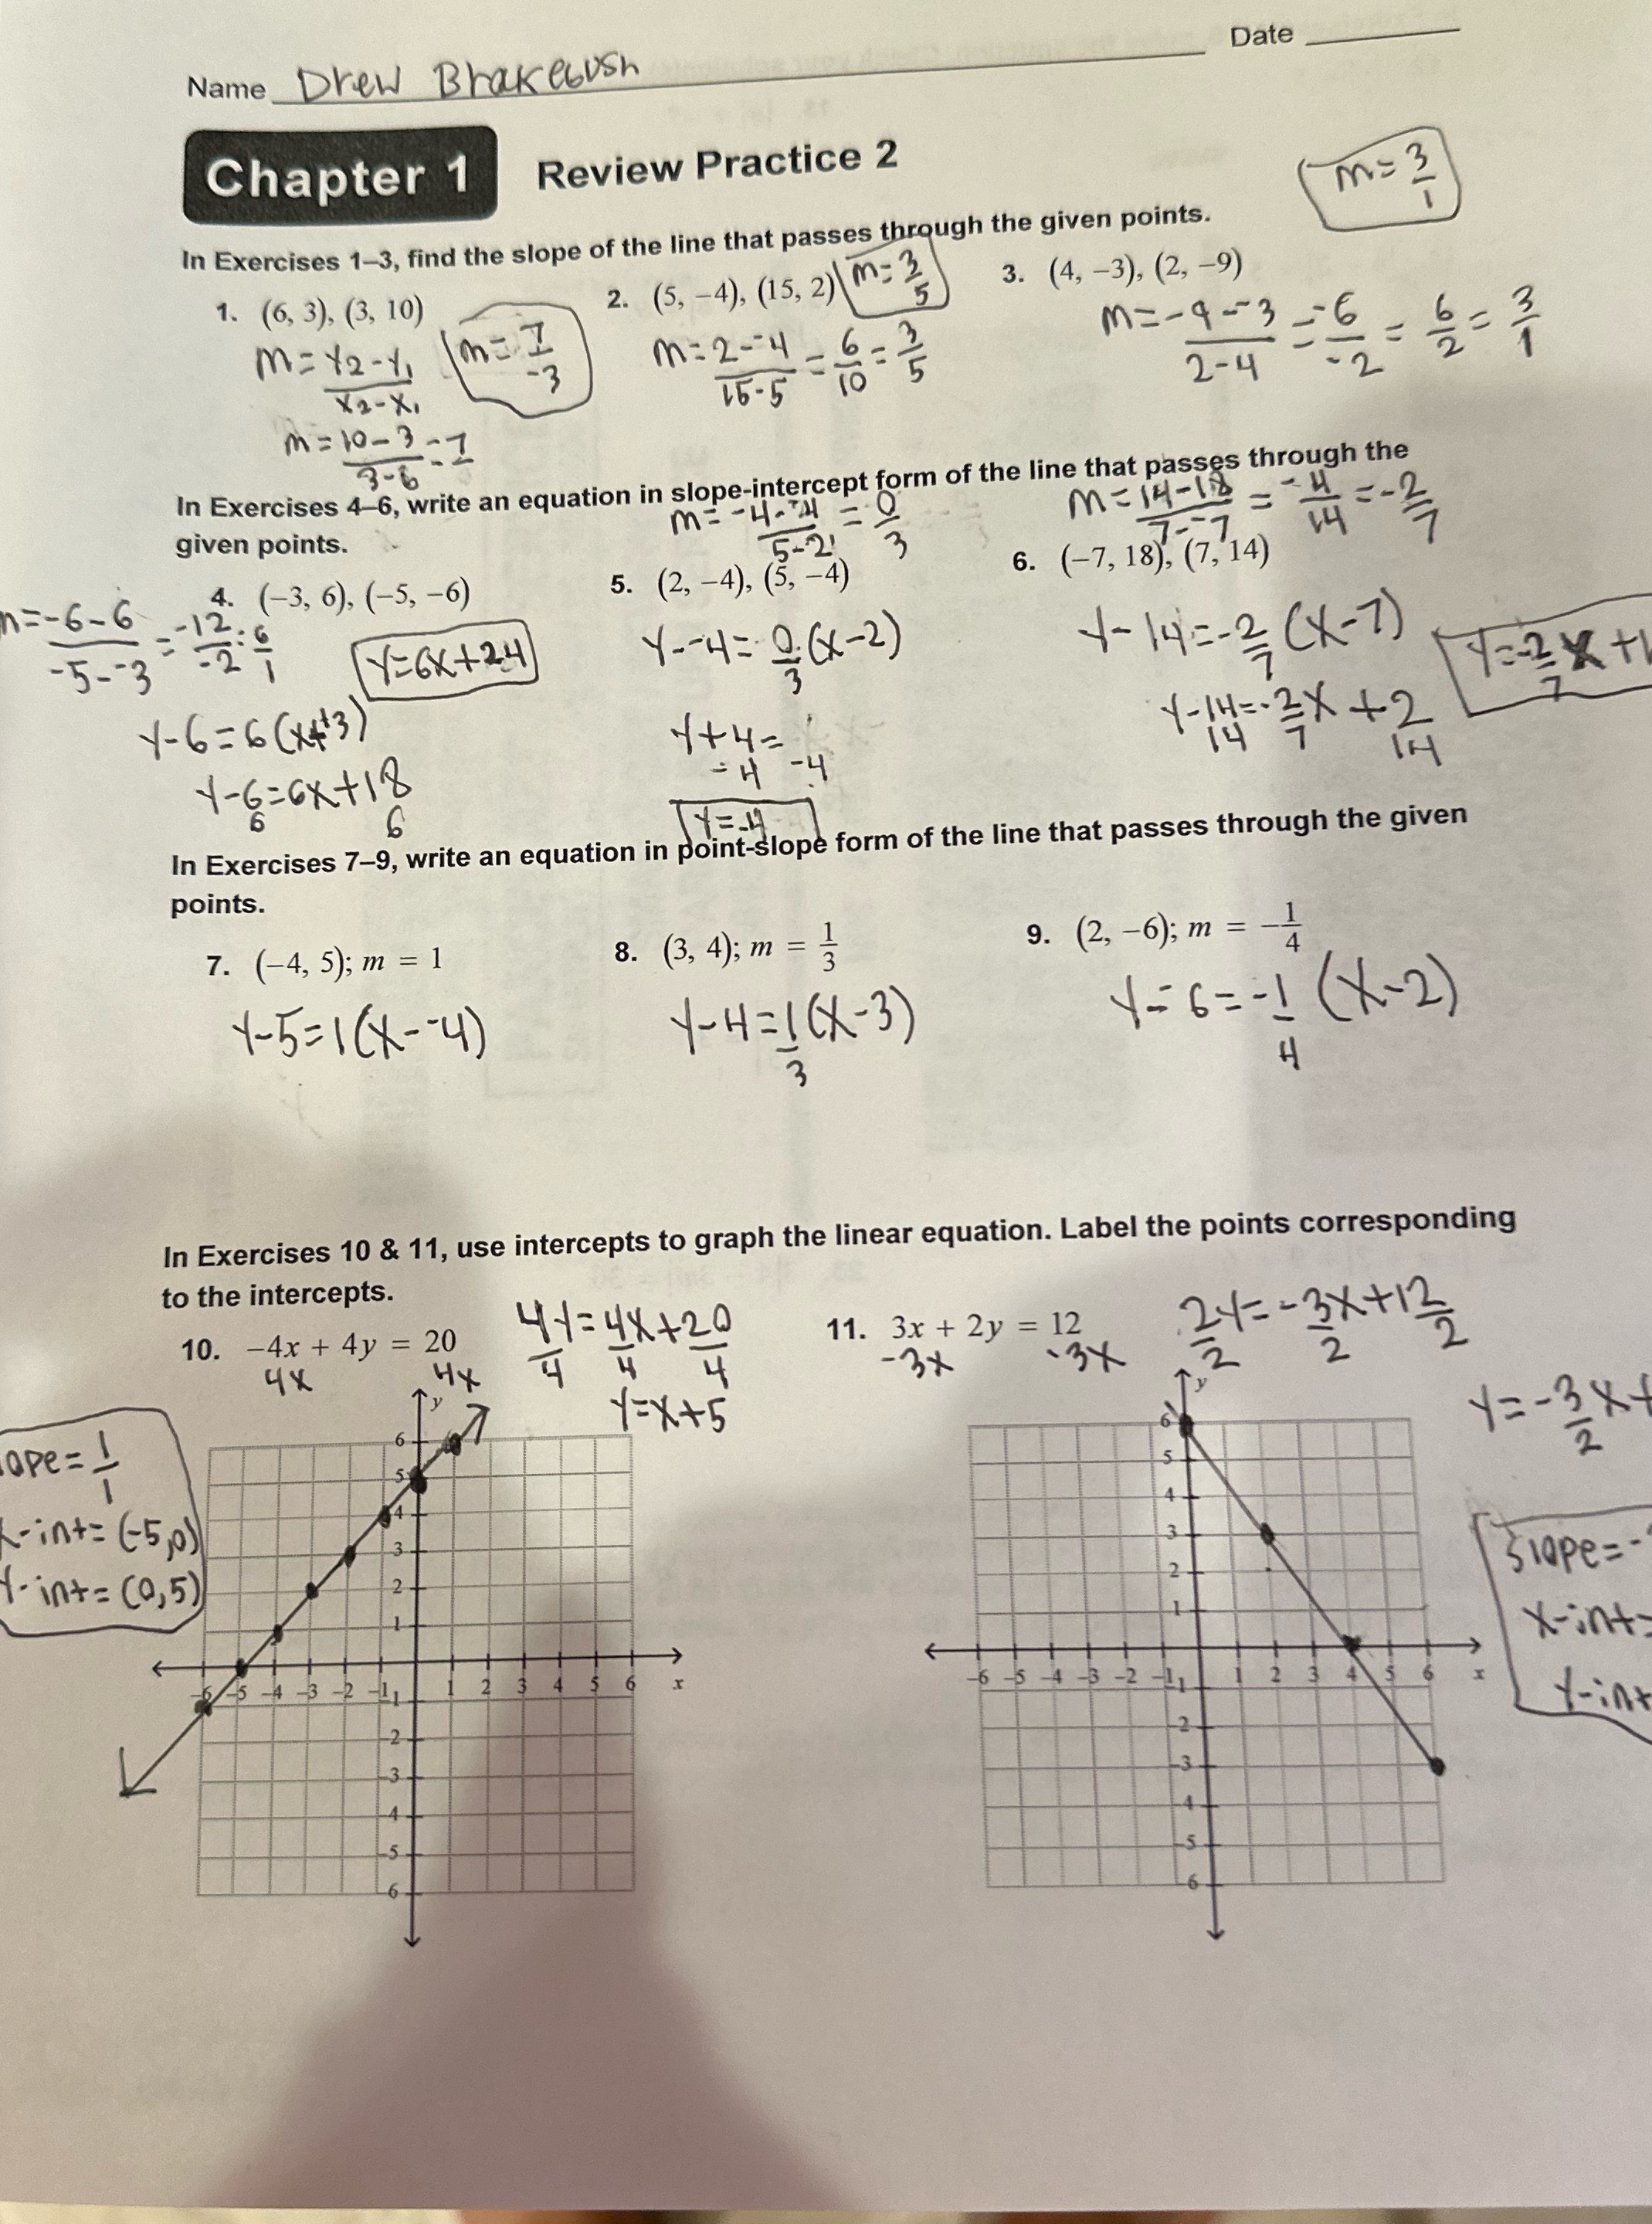 Name Drew Brakebush Date
Chapter 1 Review Practice 2
m = 3/1
In Exercises 1–3, find the slope of the line that passes through the given points.
1. (6, 3), (3, 10)
m = Y2 - Y1 / X2 - X1
m = 10 - 3 / 3 - 6 = 7
m = 7/-3
2. (5, −4), (15, 2)
m = 3/5
m = 2 - -4 / 15 - 5 = 6/10 = 3/5
3. (4, −3), (2, −9)
m = -9 - -3 / 2 - 4 = -6/-2 = 6/2 = 3/1
In Exercises 4–6, write an equation in slope-intercept form of the line that passes through the
given points.
4. (−3, 6), (−5, −6)
m = -6 - 6 / -5 - -3 = -12/-2 = 6/1
Y = 6X + 24
Y - 6 = 6(X + 3)
Y - 6 = 6X + 18
6 6
m = -4 - -4 / 5 - 2 = 0/3
5. (2, −4), (5, −4)
Y - -4 = 0/3 (X - 2)
Y + 4 =
-4 -4
Y = -4
m = 14 - 18 / 7 - -7 = -4/14 = -2/7
6. (−7, 18), (7, 14)
Y - 14 = -2/7 (X - 7)
Y - 14 = -2/7 X + 2
14 14
Y = -2/7 X + 1
In Exercises 7–9, write an equation in point-slope form of the line that passes through the given
points.
7. (−4, 5); m = 1
Y - 5 = 1(X - -4)
8. (3, 4); m = 1/3
Y - 4 = 1/3 (X - 3)
9. (2, −6); m = −1/4
Y - -6 = -1/4 (X - 2)
In Exercises 10 & 11, use intercepts to graph the linear equation. Label the points corresponding
to the intercepts.
10. −4x + 4y = 20
4X 4X
4Y/4 = 4X/4 + 20/4
Y = X + 5
ope = 1/1
X-int = (-5,0)
Y-int = (0,5)
y
6
5
4
3
2
1
−6 −5 −4 −3 −2 −1 1 2 3 4 5 6 x
−1
−2
−3
−4
−5
−6
11. 3x + 2y = 12
-3X -3X
2Y/2 = -3X/2 + 12/2
Y = -3/2 X +
slope = -
X-int =
Y-int
y
6
5
4
3
2
1
−6 −5 −4 −3 −2 −1 1 2 3 4 5 6 x
−1
−2
−3
−4
−5
−6